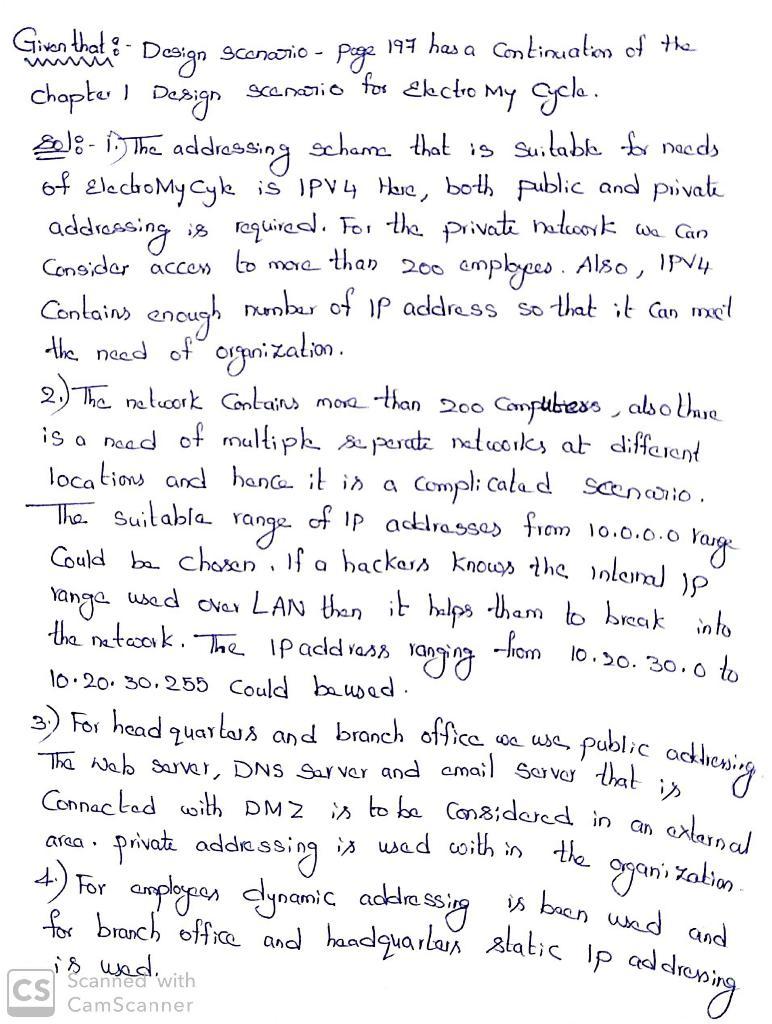 Given that :- Design scenario - page 197 has a Continuation of the
chapter 1 Design scenario for Electro My Cycle.
Sol:- 1.) The addressing scheme that is suitable for needs
of ElectroMyCyle is IPV4 Here, both public and private
addressing is required. For the private network we can
Consider access to more than 200 employees. Also, IPV4
Contains enough number of IP address so that it can meet
the need of organization.
2.) The network Contains more than 200 Computers, also there
is a need of multiple seperate networks at different
locations and hence it is a complicated scenario.
The suitable range of IP addresses from 10.0.0.0 range
Could be chosen. If a hackers knows the internal IP
range used over LAN then it helps them to break into
the network. The IP address ranging from 10.20.30.0 to
10.20.30.255 could be used.
3.) For head quarters and branch office we use, public addressing.
The web server, DNS server and email server that is
Connected with DMZ is to be considered in an external
area. private addressing is used with in the organization.
4.) For employees dynamic addressing is been used and
for branch office and headquarters static IP addressing
is used.
CS Scanned with
CamScanner